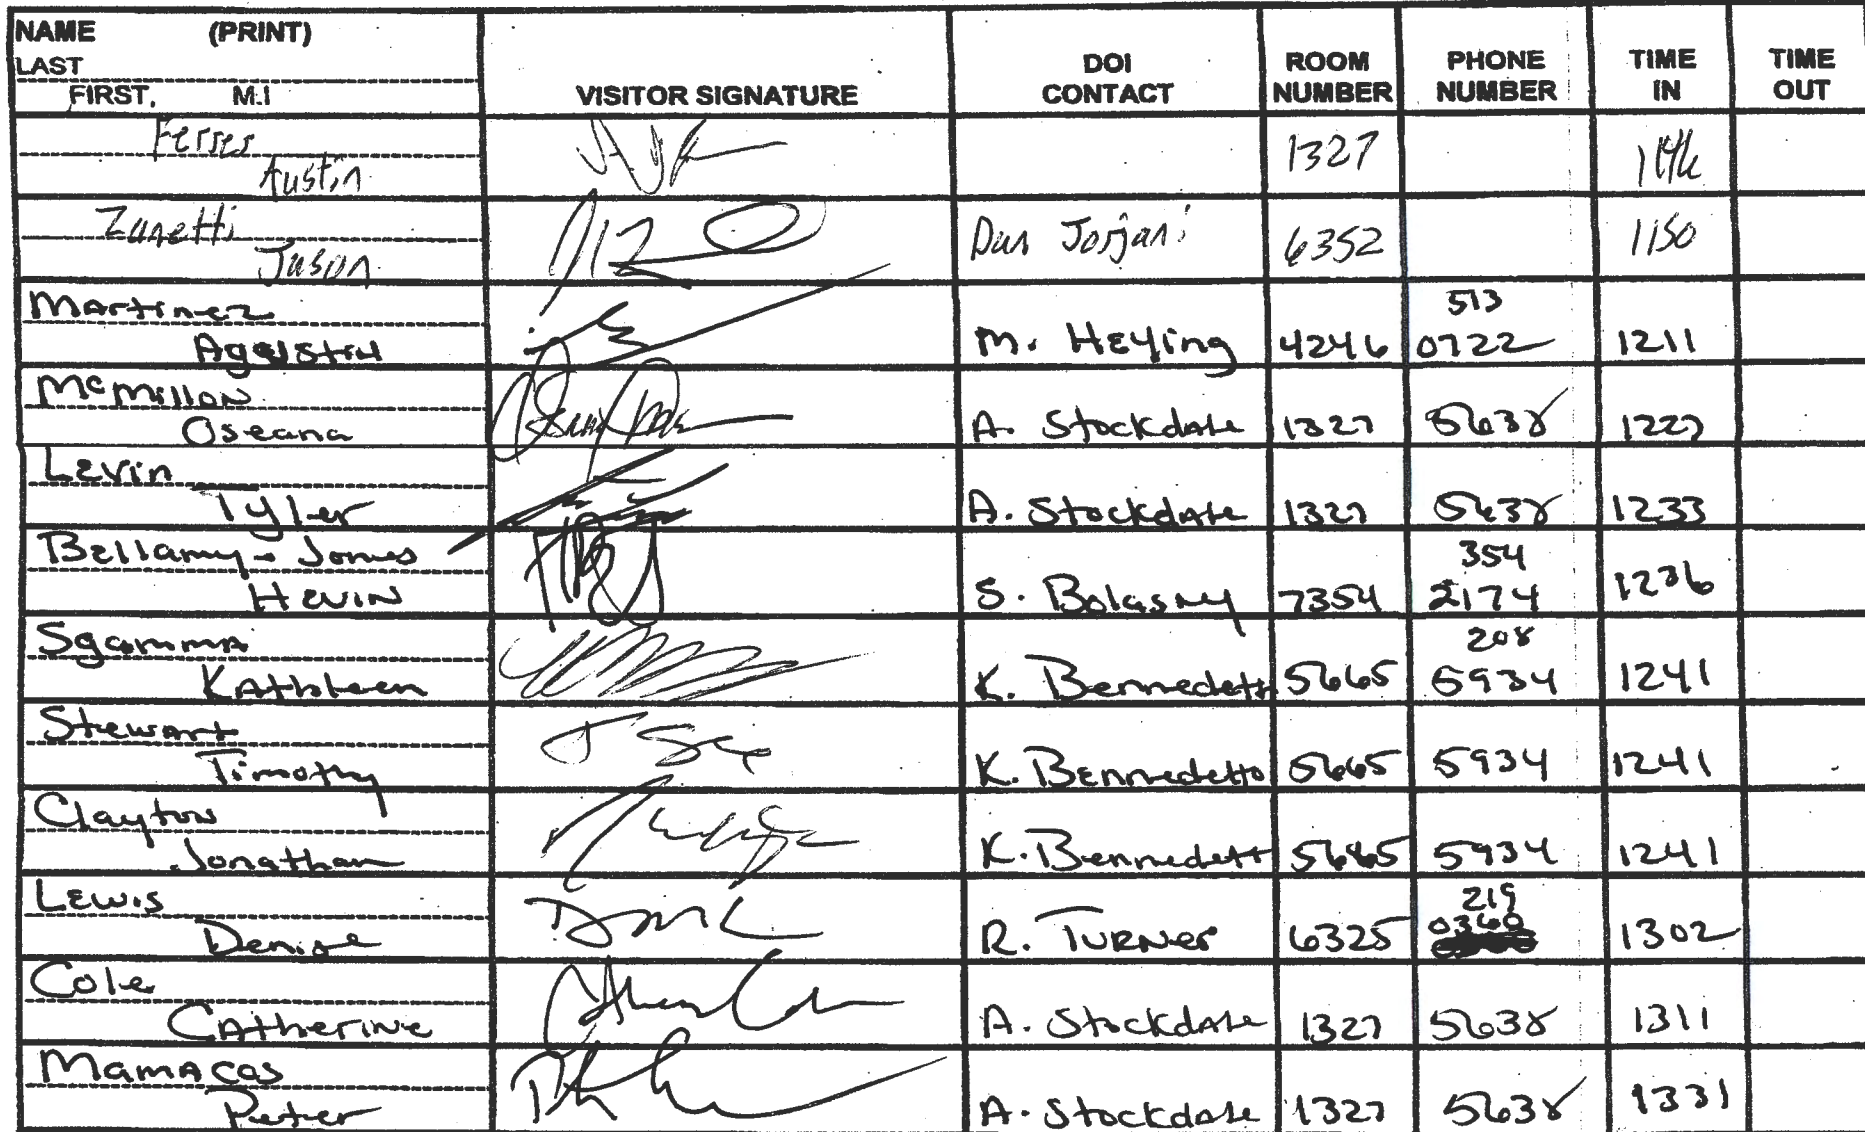 NAME (PRINT)
LAST
FIRST, M.I
VISITOR SIGNATURE
DOI CONTACT
ROOM NUMBER
PHONE NUMBER
TIME IN
TIME OUT
Ferrer
Austin 1327 1146
Zanetti
Jason Dan Jorjani 6352 1150
Martinez 513
Agustin M. Heying 4246 0722 1211
McMillan
Oseana A. Stockdale 1327 5638 1227
Levin
Tyler A. Stockdale 1327 5638 1233
Bellamy-Jones 354
S. Bolasny 7354 2174 1236
Sgamma 208
Kathleen K. Bennedett 5665 5934 1241
Stewart
Timothy K. Bennedetto 5665 5934 1241
Clayton
Jonathan K. Bennedett 5665 5934 1241
Lewis 219
Denise R. Turner 6325 0360 1302
Cole
Catherine A. Stockdale 1327 5638 1311
Mamacos
Peter A. Stockdale 1327 5638 1331